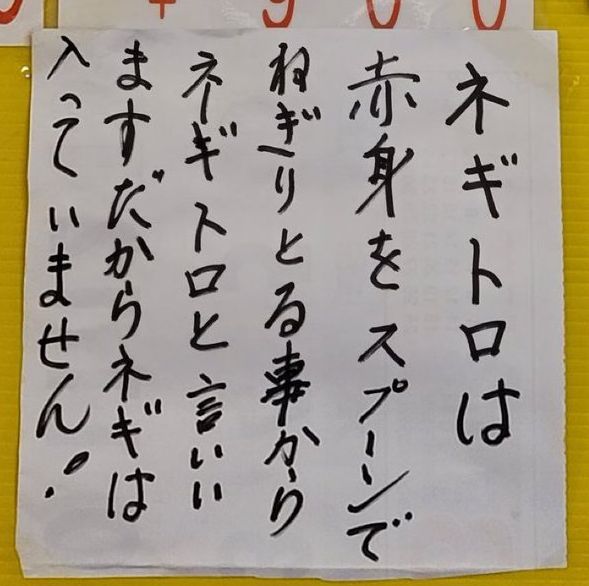 ネギトロは
赤身をスプーンで
ねぎりとる事から
ネギトロと言いい
ますだからネギは
入っていません!